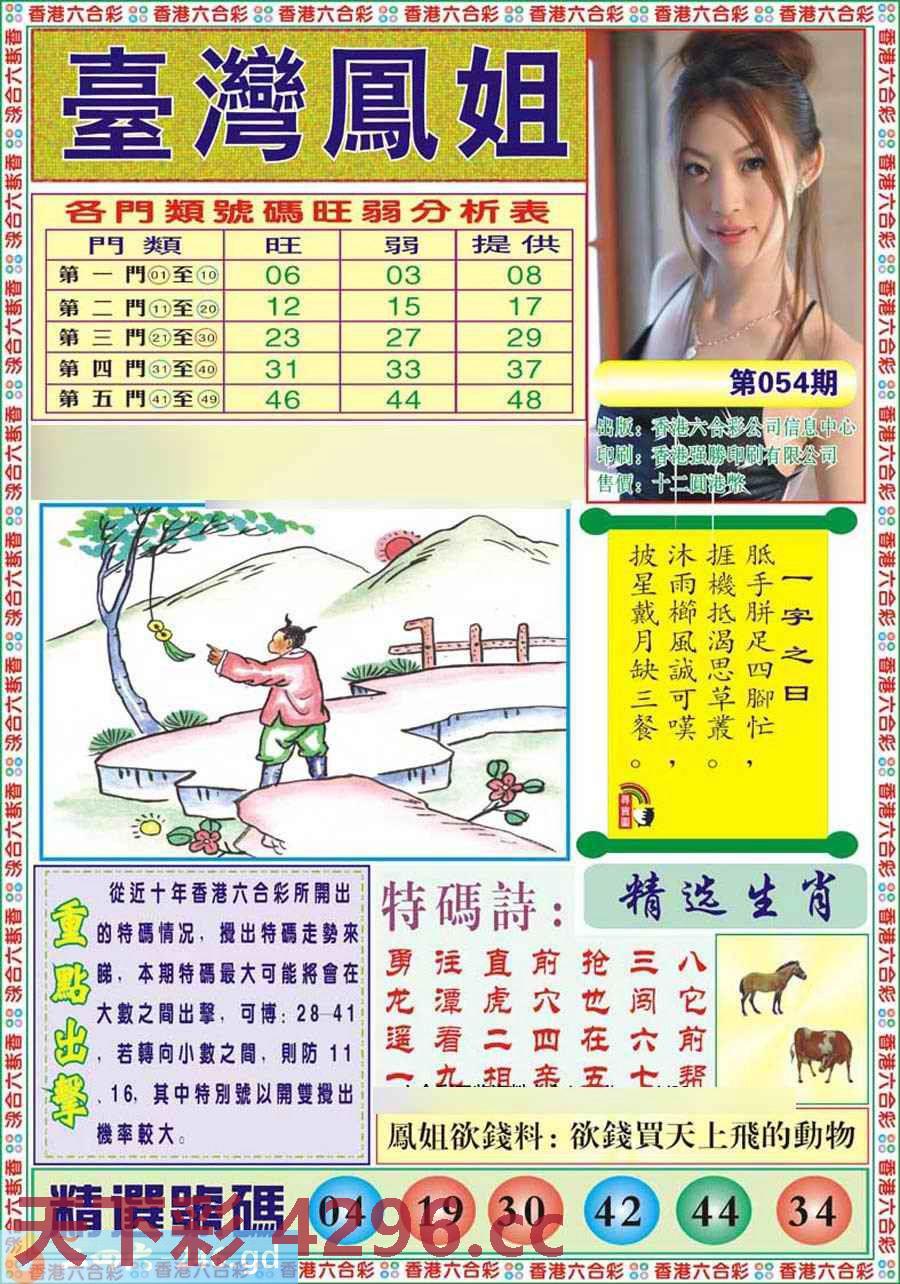 香港六合彩
臺灣鳳姐
各門類號碼旺弱分析表
門類 旺 弱 提供
第一門01至10 06 03 08
第二門11至20 12 15 17
第三門21至30 23 27 29
第四門31至40 31 33 37
第五門41至49 46 44 48
第054期
出版：香港六合彩公司信息中心
印刷：香港强勝印刷有限公司
售價：十二圓港幣
一字之日
胝手胼足四腳忙，
捱機抵渴思草叢。
沐雨櫛風誠可嘆，
披星戴月缺三餐。
尋寶圖
重點出擊
從近十年香港六合彩所開出
的特碼情况，攪出特碼走勢來
睇，本期特碼最大可能將會在
大數之間出擊，可博：28—41
，若轉向小數之間，則防 11
、16，其中特別號以開雙攪出
機率較大。
特碼詩：
勇往直前抢三八
龙潭虎穴也闯它
遥看二四在六前
一九相亲五七
精选生肖
鳳姐欲錢料：欲錢買天上飛的動物
精選號碼 04 19 30 42 44 34
天下彩4296.cc